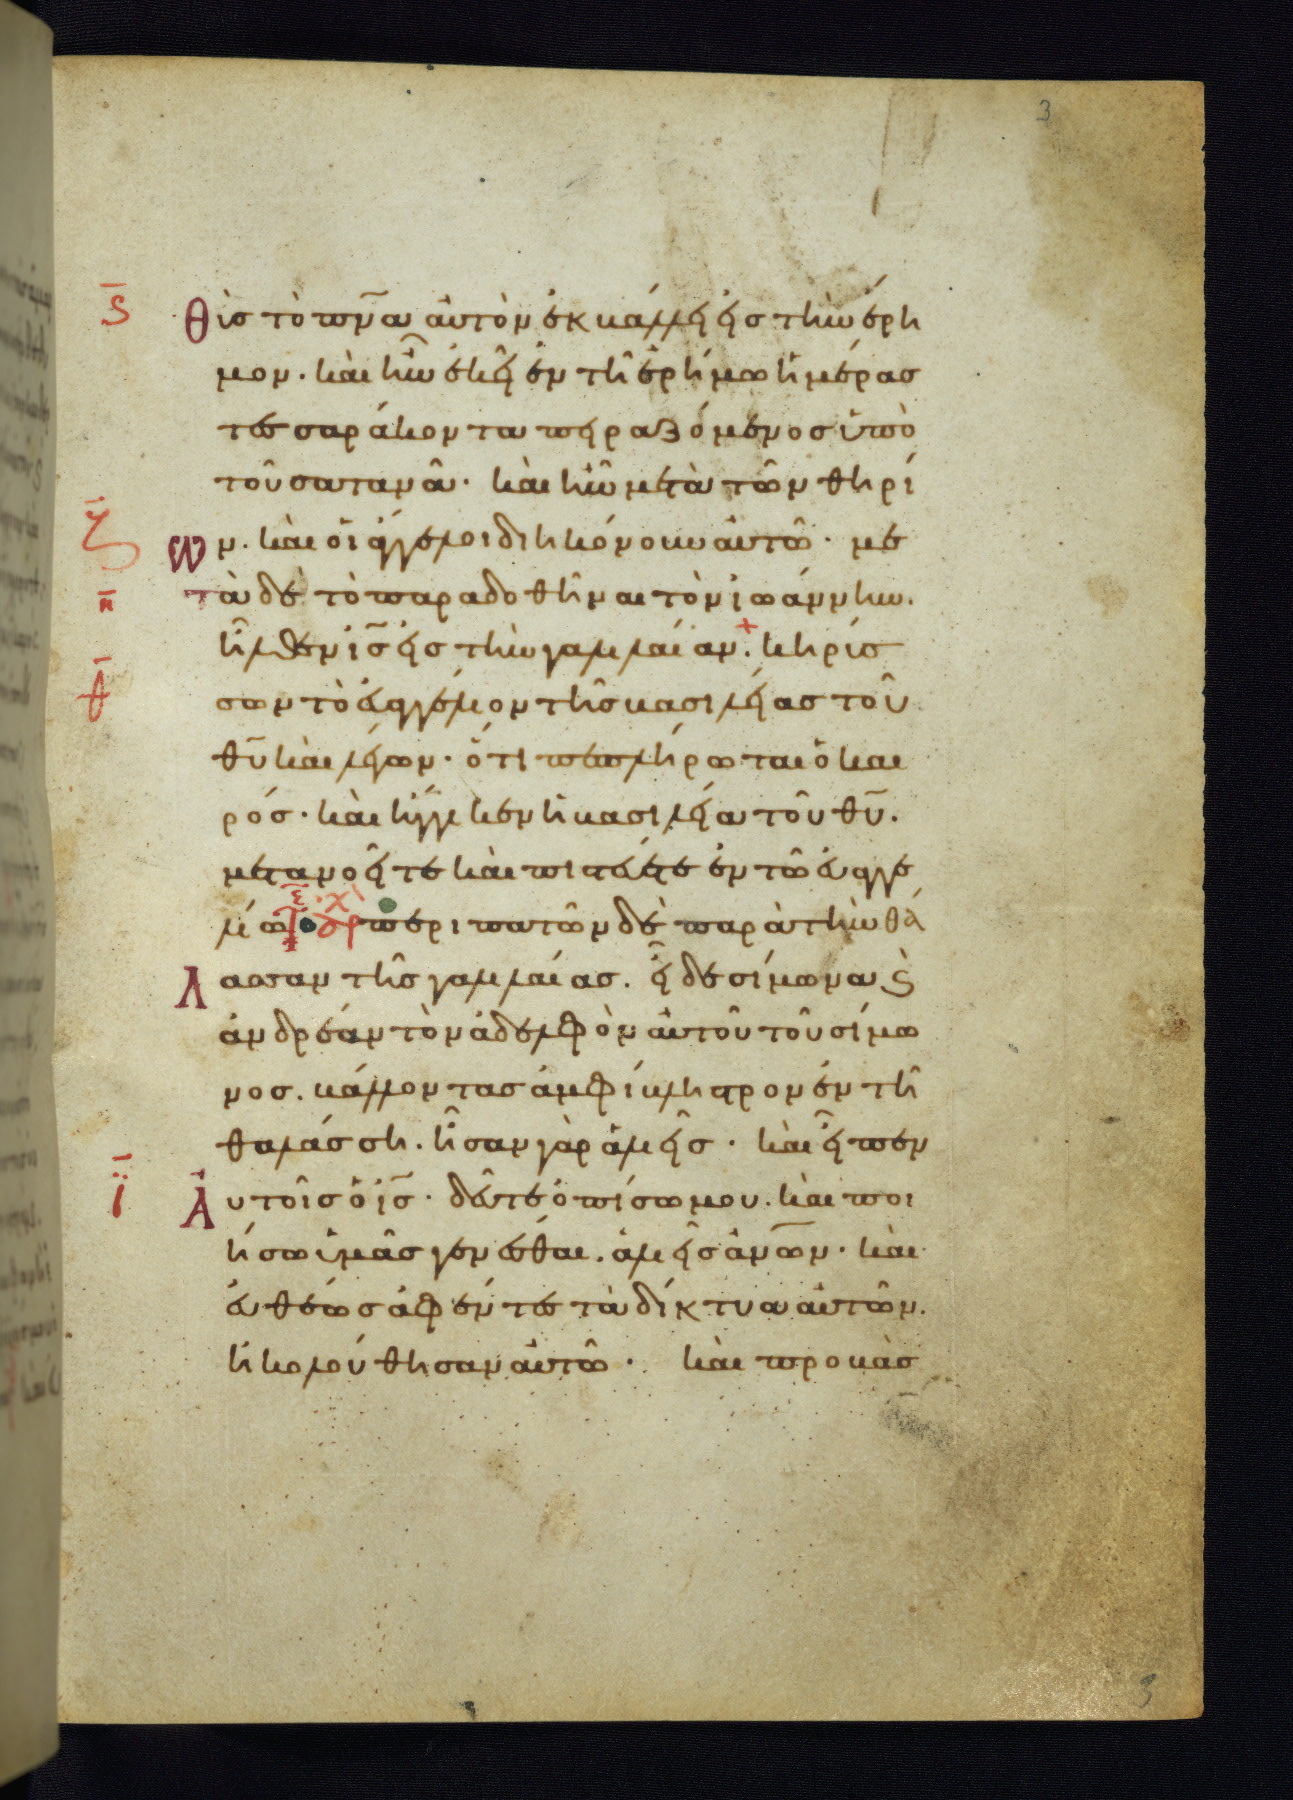 3
ϛ̅
θὺς τὸ πν̅α αὐτὸν ἐκβάλλει εἰς τὴν ἔρη
μον. καὶ ἦν ἐκεῖ ἐν τῆ ἐρήμω ἡμέρας
τεσσαράκοντα πειραζόμενος ὑπὸ
τοῦ σατανᾶ. καὶ ἦν μετὰ τῶν θηρί
ζ̅
ων. καὶ οἱ ἄγγελοι διηκόνουν αὐτῶ. με
η̅
τὰ δὲ τὸ παραδοθῆναι τὸν ἰωάννην.
ἦλθεν ἰς̅ εἰς τὴν γαλιλαίαν. κηρύσ
θ̅
σων τὸ εὐαγγέλιον τῆς βασιλείας τοῦ
θυ̅ καὶ λέγων. ὅτι πεπλήρωται ὁ και
ρός. καὶ ἤγγικεν ἡ βασιλεία τοῦ θυ̅.
μετανοεῖτε καὶ πιστεύετε ἐν τῶ εὐαγγε
λίω περιπατῶν δὲ παρὰ τὴν θά
λασσαν τῆς γαλιλαίας. εἶδε σίμωνα ϗ
ἀνδρέαν τὸν ἀδελφὸν αὐτοῦ τοῦ σίμω
νος. βάλλοντας ἀμφίβληστρον ἐν τῆ
θαλάσση. ἦσαν γὰρ ἁλιεῖς. καὶ εἶπεν
ι̅
αὐτοῖς ὁ ἰς̅. δεῦτε ὀπίσω μου. καὶ ποι
ήσω ὑμᾶς γενέσθαι. ἁλιεῖς ἀν̅ων. καὶ
εὐθέως ἀφέντες τὰ δίκτυα αὐτῶν.
ἠκολούθησαν αὐτῶ. καὶ προβὰς
3